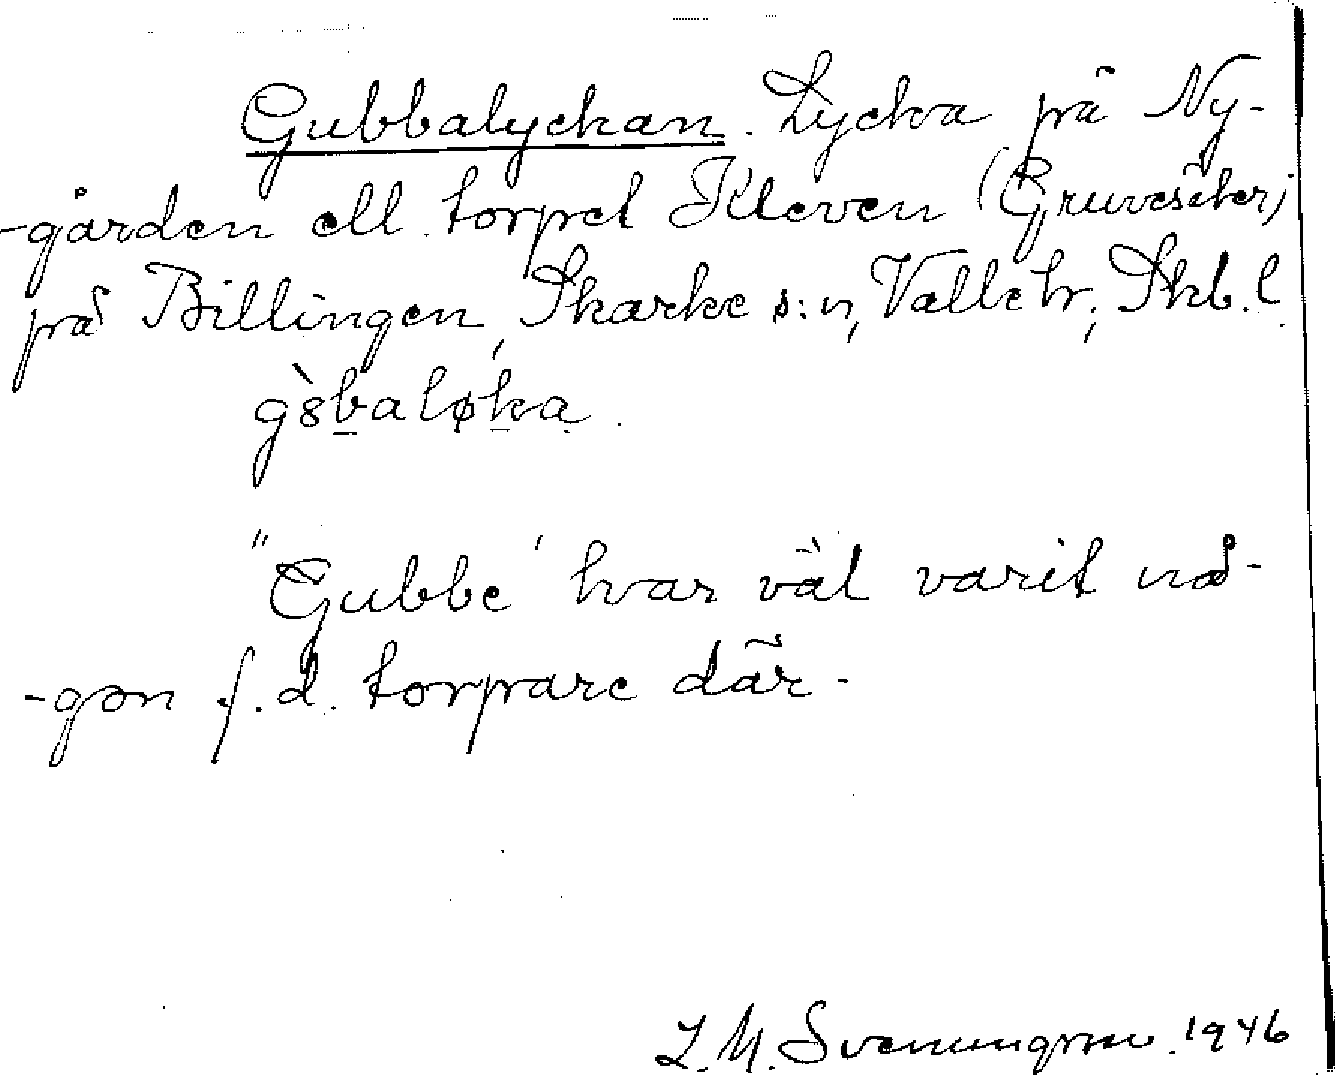 Gubbalyckan. Lycka på Ny-
-gården ell. torpet Kleven (Gruvesäter)
på Billingen, Skarke s:n, Valle hr, Skb. l.
g`8balø´ka.
"Gubbe" har väl varit nå-
-gon f.d. torpare där.
L. M. Svenungsson. 1946